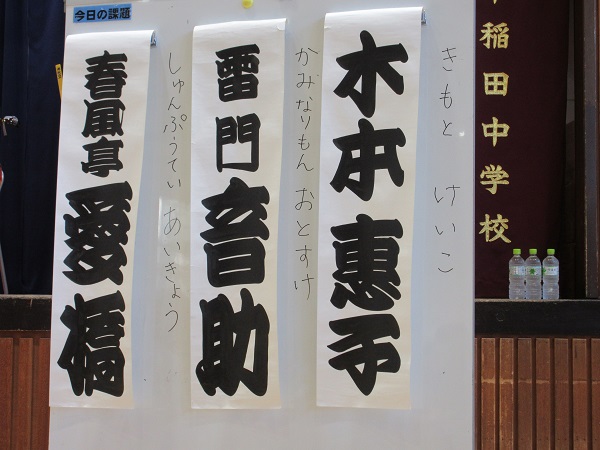 今日の課題
木本惠子
きもと けいこ
雷門音助
かみなりもん おとすけ
春風亭愛橋
しゅんぷうてい あいきょう
稲田中学校